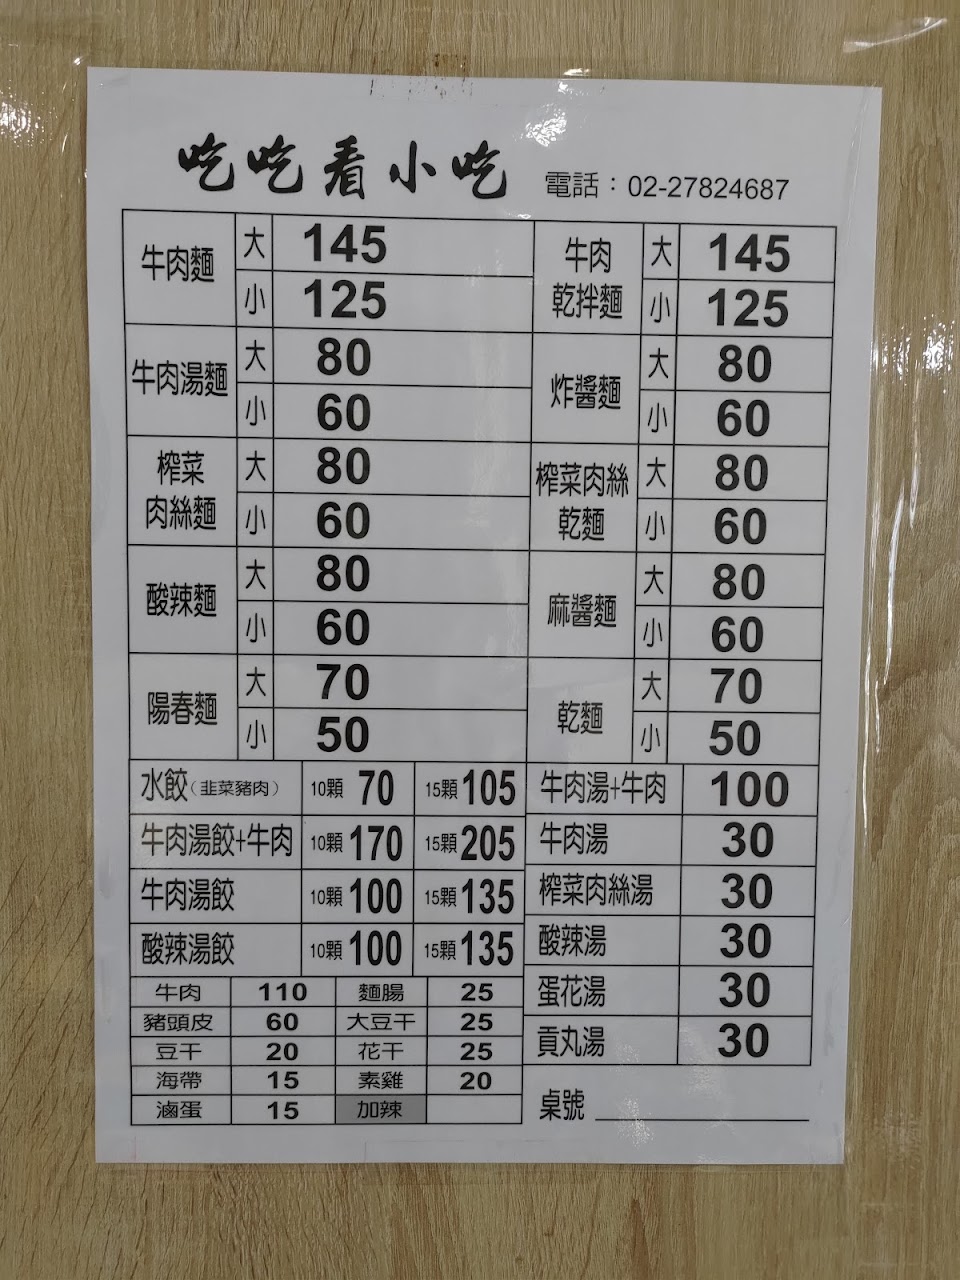 吃吃看小吃 電話：02-27824687
牛肉麵 大 145
小 125
牛肉湯麵 大 80
小 60
榨菜
肉絲麵 大 80
小 60
酸辣麵 大 80
小 60
陽春麵 大 70
小 50
牛肉
乾拌麵 大 145
小 125
炸醬麵 大 80
小 60
榨菜肉絲
乾麵 大 80
小 60
麻醬麵 大 80
小 60
乾麵 大 70
小 50
水餃（韭菜豬肉） 10顆 70 15顆 105
牛肉湯餃+牛肉 10顆 170 15顆 205
牛肉湯餃 10顆 100 15顆 135
酸辣湯餃 10顆 100 15顆 135
牛肉湯+牛肉 100
牛肉湯 30
榨菜肉絲湯 30
酸辣湯 30
蛋花湯 30
貢丸湯 30
牛肉 110 麵腸 25
豬頭皮 60 大豆干 25
豆干 20 花干 25
海帶 15 素雞 20
滷蛋 15 加辣
桌號